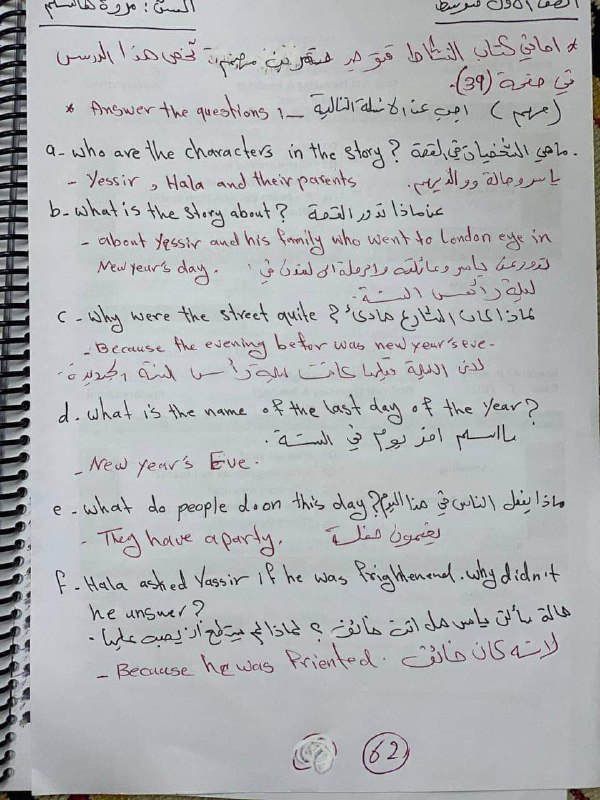 الصف الأول متوسط الست: مروة هاشم
* اماني كتاب النشاط تخص هذا الدرس
في صفحة (39).
* Answer the questions :- اجب عن الاسئلة التالية ( مهم )
a- who are the characters in the story? ماهي الشخصيات في القصة.
- Yessir, Hala and their parents ياسر وحالة ووالديهم.
b- what is the story about? عن ماذا تدور القصة
- about Yessir and his family who went to London eye in
New year's day. تدور عن ياسر وعائلته والرحلة الى لندن في
ليلة رأس السنة.
c- why were the street quite? لماذا كان الشارع هادئ
- Because the evening befor was new year's eve-
لان الليلة قبلها كانت ليلة رأس السنة الجديدة.
d- what is the name of the last day of the year?
مااسم اخر يوم في السنة.
- New year's Eve.
e- what do people do on this day? ماذا يفعل الناس في هذا اليوم
- They have a party. يقيمون حفلة
f- Hala asked Yassir if he was frightenend. why didn't
he unswer?
حالة سألت ياسر هل انت خائف؟ لماذا لم يستطع أن يجيب عليها.
- Because he was friented. لانه كان خائف
62